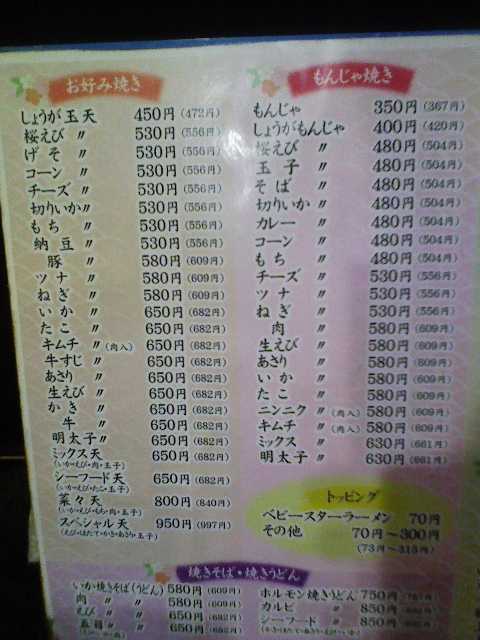 お好み焼き
しょうが玉天 450円(472円)
桜えび 〃 530円(556円)
げそ 〃 530円(556円)
コーン 〃 530円(556円)
チーズ 〃 530円(556円)
切りいか 〃 530円(556円)
もち 〃 530円(556円)
納豆 〃 530円(556円)
豚 〃 580円(609円)
ツナ 〃 580円(609円)
ねぎ 〃 580円(609円)
いか 〃 650円(682円)
たこ 〃 650円(682円)
キムチ 〃(肉入) 650円(682円)
牛すじ 〃 650円(682円)
あさり 〃 650円(682円)
生えび 〃 650円(682円)
かき 〃 650円(682円)
牛 〃 650円(682円)
明太子 〃 650円(682円)
ミックス天 650円(682円)
(いか・えび・肉・玉子)
シーフード天 650円(682円)
(いか・えび・たこ・玉子)
菜々天 800円(840円)
(いか・えび・もち・肉・玉子)
スペシャル天 950円(997円)
(えび・ほたて・かき・あさり・玉子)
もんじゃ焼き
もんじゃ 350円(367円)
しょうがもんじゃ 400円(420円)
桜えび 〃 480円(504円)
玉子 〃 480円(504円)
そば 〃 480円(504円)
切りいか 〃 480円(504円)
カレー 〃 480円(504円)
コーン 〃 480円(504円)
もち 〃 480円(504円)
チーズ 〃 530円(556円)
ツナ 〃 530円(556円)
ねぎ 〃 530円(556円)
肉 〃 580円(609円)
生えび 〃 580円(609円)
あさり 〃 580円(609円)
いか 〃 580円(609円)
たこ 〃 580円(609円)
ニンニク 〃(肉入) 580円(609円)
キムチ 〃(肉入) 580円(609円)
ミックス 〃 630円(661円)
明太子 〃 630円(661円)
トッピング
ベビースターラーメン 70円
その他 70円〜300円
(73円〜315円)
焼きそば・焼きうどん
いか焼きそば(うどん) 580円(609円)
肉 〃 580円(609円)
えび 〃 650円(682円)
五目 〃 650円(682円)
ホルモン焼きうどん 750円
カルビ 〃 850円
シーフード 〃 850円